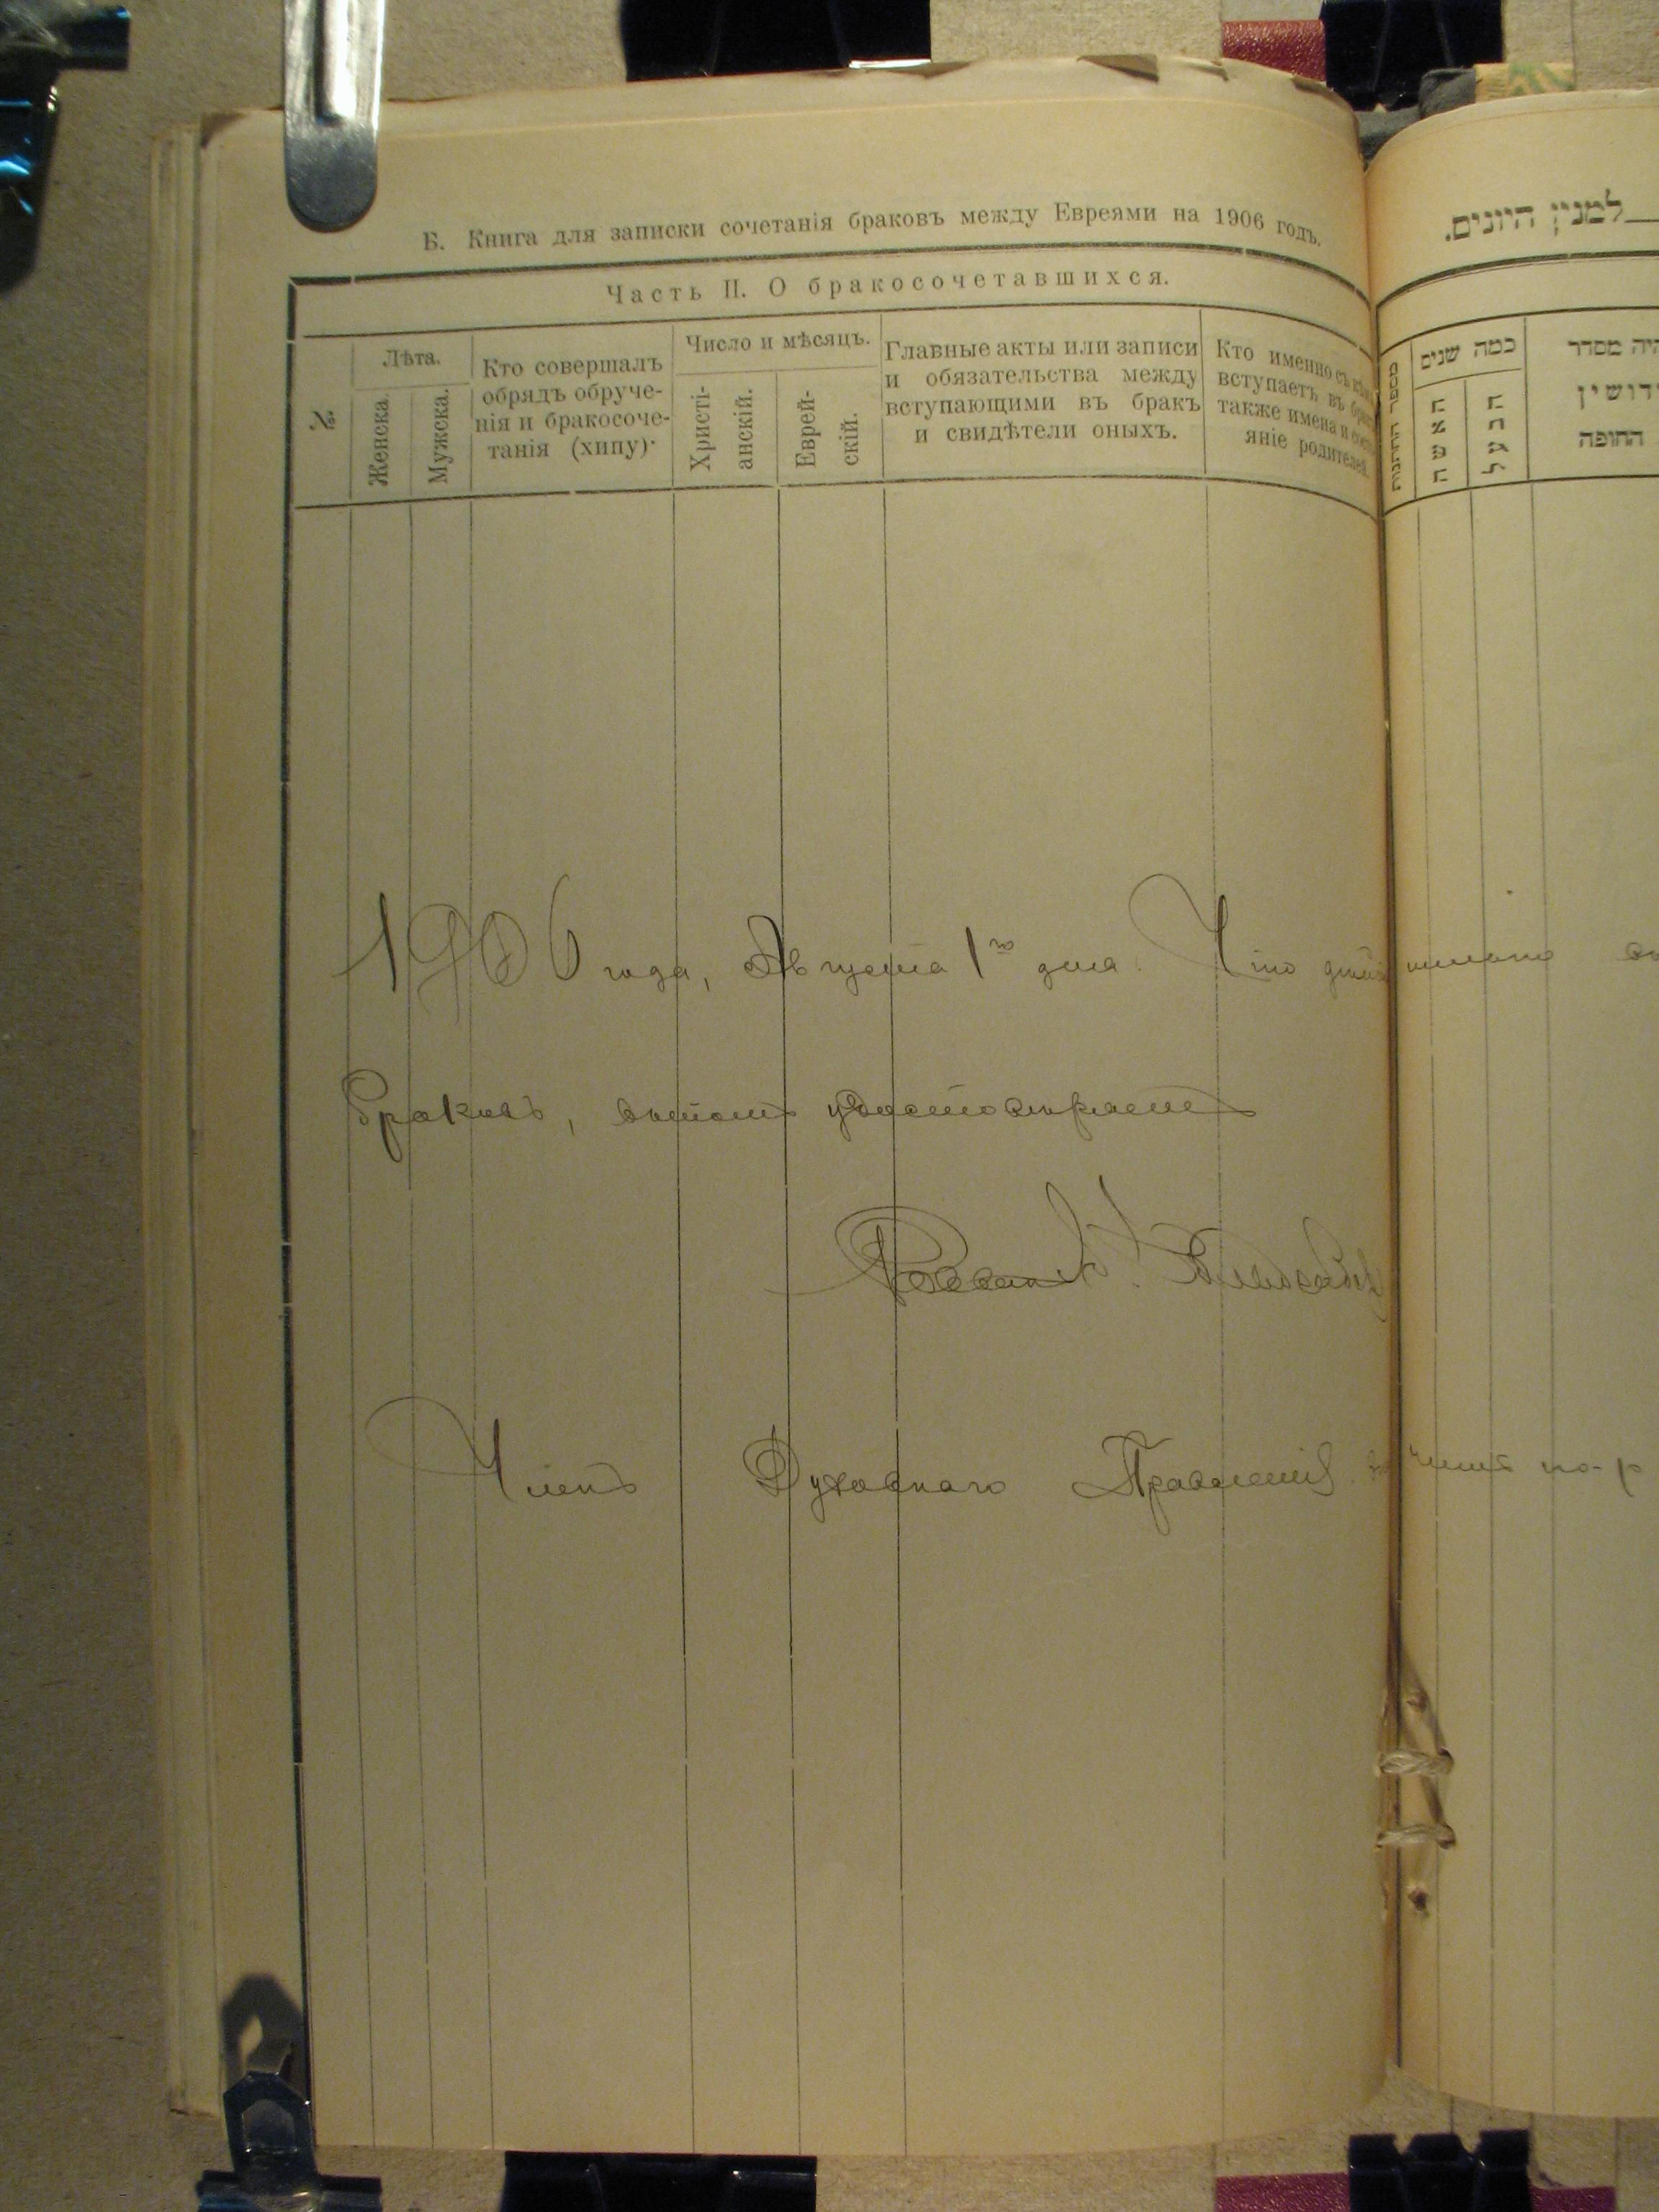 Б. Книга для записки сочетанія браковъ между Евреями на 1906 годъ.
Часть II. О бракосочетавшихся.
№.
Лѣта.
Женска.
Мужска.
Кто совершалъ
обрядъ обруче-
нія и бракосоче-
танія (хипу).
Число и мѣсяцъ.
Христі-
анскій.
Еврей-
скій.
Главные акты или записи
и обязательства между
вступающими въ бракъ
и свидѣтели оныхъ.
Кто именно съ кѣмъ
вступаетъ въ бракъ
также имена и состо-
яніе родителей.
1906 года, Августа 1го дня. Что
браковъ, въ томъ удостовѣряетъ
Раввинъ
Членъ Духовнаго Правленія
למנין היונים.
מספר החתונות
כמה שנים
האשה
הבעל
היה מסדר
החופה